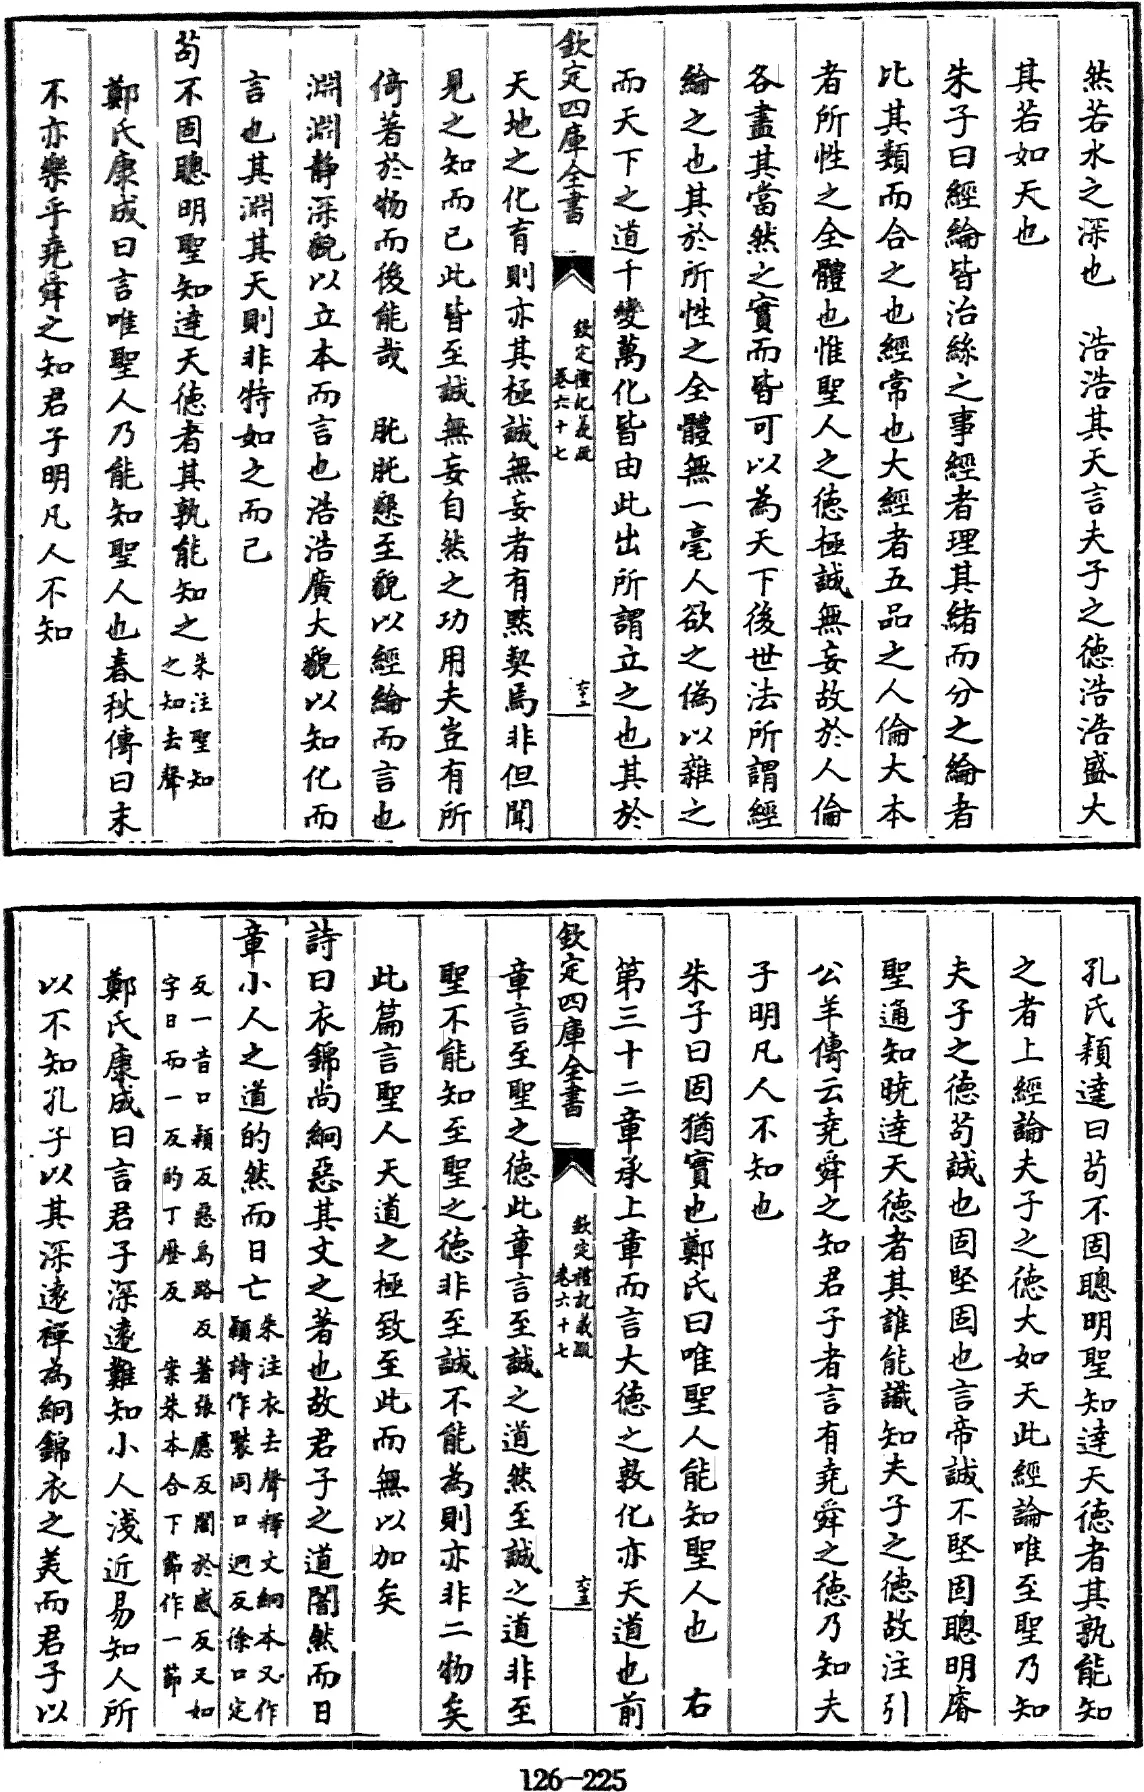 然若水之深也　浩浩其天言夫子之德浩浩盛大
其若如天也
朱子曰經綸皆治絲之事經者理其緒而分之綸者
比其類而合之也經常也大經者五品之人倫大本
者所性之全體也惟聖人之德極誠無妄故於人倫
各盡其當然之實而皆可以為天下後世法所謂經
綸之也其於所性之全體無一毫人欲之偽以雜之
而天下之道千變萬化皆由此出所謂立之也其於
欽定四庫全書　欽定禮記義疏　卷六十七　六十二
天地之化育則亦其極誠無妄者有黙契焉非但聞
見之知而已此皆至誠無妄自然之功用夫豈有所
倚著於物而後能哉　肫肫懇至貌以經綸而言也
淵淵靜深貌以立本而言也浩浩廣大貌以知化而
言也其淵其天則非特如之而已
苟不固聰明聖知達天德者其孰能知之朱注聖知之知去聲
鄭氏康成曰言唯聖人乃能知聖人也春秋傳曰末
不亦樂乎堯舜之知君子明凡人不知
孔氏穎達曰苟不固聰明聖知達天德者其孰能知
之者上經論夫子之德大如天此經論唯至聖乃知
夫子之德苟誠也固堅固也言帝誠不堅固聰明睿
聖通知曉達天德者其誰能識知夫子之德故注引
公羊傳云堯舜之知君子者言有堯舜之德乃知夫
子明凡人不知也
朱子曰固猶實也鄭氏曰唯聖人能知聖人也　右
第三十二章承上章而言大德之敦化亦天道也前
欽定四庫全書　欽定禮記義疏　卷六十七　六十三
章言至聖之德此章言至誠之道然至誠之道非至
聖不能知至聖之德非至誠不能為則亦非二物矣
此篇言聖人天道之極致至此而無以加矣
詩曰衣錦尚絅惡其文之著也故君子之道闇然而日
章小人之道的然而日亡朱注衣去聲釋文絅本又作穎詩作褧同口迥反徐口定
反一音口穎反惡烏路反著張慮反闇於感反又如字日而一反的丁歷反　案朱本合下節作一節
鄭氏康成曰言君子深遠難知小人淺近易知人所
以不知孔子以其深遠禪為絅錦衣之美而君子以
126-225